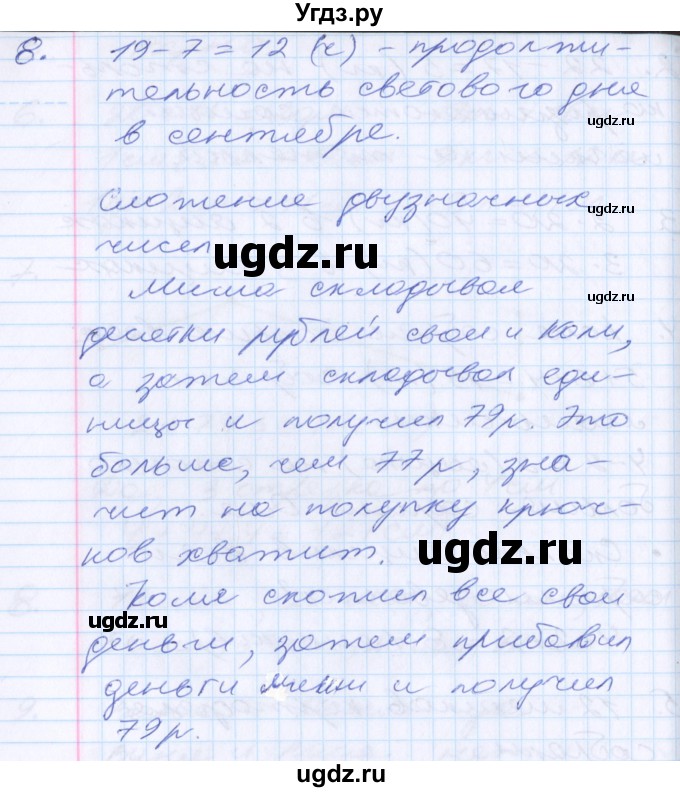 Угдз.ру
8. 19-7=12 (ч) - продолжи-
тельность светового дня
ugdz.ru
в сентябре.
ugdz.ru
Сложение двузначных
чисел
ugdz.ru
Миша складывал
ugdz.ru
десятки рублей свои и Коли,
а затем складывал еди-
ницы и получил 79р. Это
больше, чем 77р, зна-
чит на покупку крюч-
ков хватит.
ugdz.ru
Коля сложил все свои
ugdz.ru
деньги, затем прибавил
деньги Миши и получил
ugdz.ru
79р.
ugdz.ru